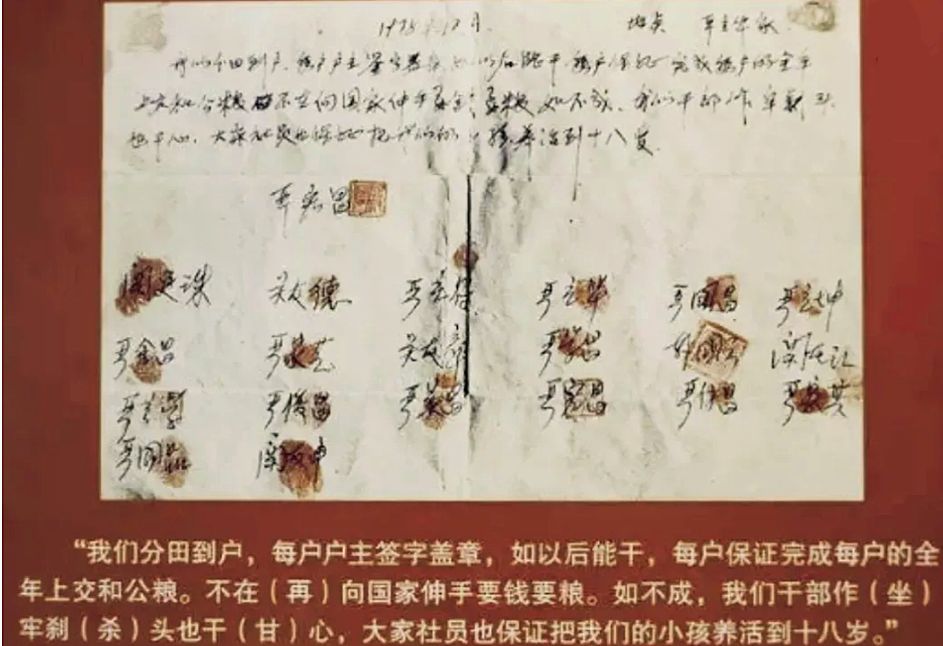 1978.12月. 地点 严立华家
我们分田到户,每户户主签字盖章,如以后能干,每户保证完成每户的全年
上交和公粮,不在向国家伸手要钱要粮,如不成,我们干部作牢刹头
也干心,大家社员也保证把我们的小孩养活到十八岁.
严宏昌
关廷珠 关友德 严立符 严立华 严国昌 严立坤
严金昌 严家芝 关友章 严学昌 韩国云 关友江
严立学 严俊昌 严美昌 严宏昌 严付昌 严家其
严国品 关友申
“我们分田到户,每户户主签字盖章,如以后能干,每户保证完成每户的全
年上交和公粮。不在(再)向国家伸手要钱要粮。如不成,我们干部作(坐)
牢刹(杀)头也干(甘)心,大家社员也保证把我们的小孩养活到十八岁。”